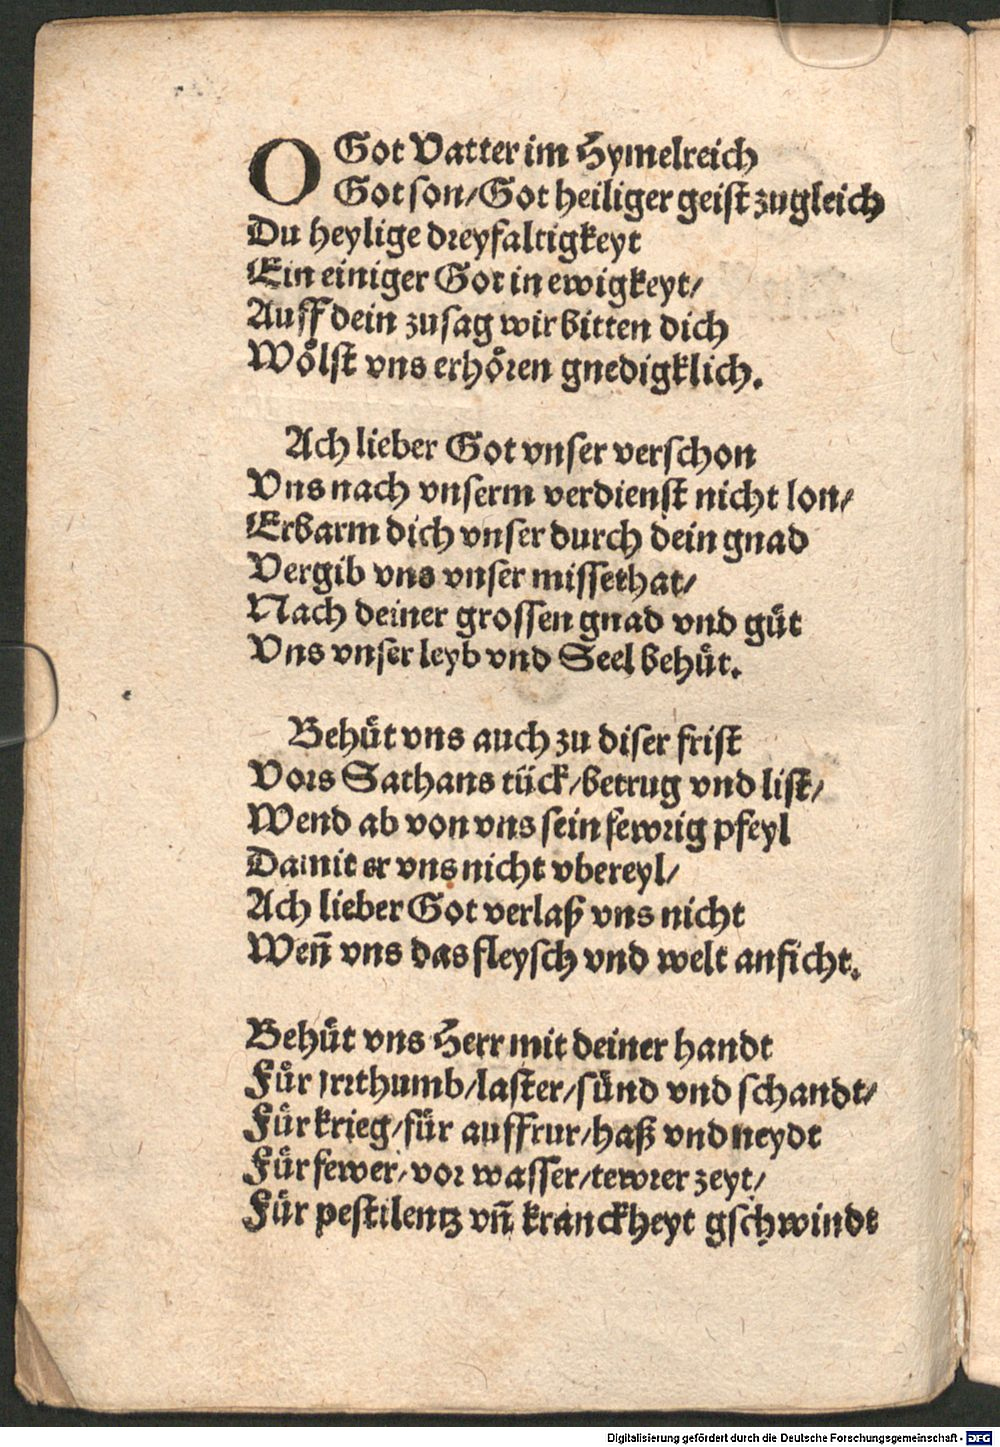 O Got Vatter im Hymelreich
Got son/Got heiliger geist zugleich
Du heylige dreyfaltigkeyt
Ein einiger Got in ewigkeyt/
Auff dein zusag wir bitten dich
Woͤlst vns erhoͤren gnedigklich.
Ach lieber Got vnser verschon
Vns nach vnserm verdienst nicht lon/
Erbarm dich vnser durch dein gnad
Vergib vns vnser missethat/
Nach deiner grossen gnad vnd guͤt
Vns vnser leyb vnd Seel behuͤt.
Behuͤt vns auch zu diser frist
Vors Sathans tuͤck/betrug vnd list/
Wend ab von vns sein fewrig pfeyl
Damit er vns nicht vbereyl/
Ach lieber Got verlaß vns nicht
Weñ vns das fleysch vnd welt anficht.
Behuͤt vns Herr mit deiner handt
Fuͤr Irrthumb/laster/suͤnd vnd schandt/
Fuͤr krieg/fuͤr auffrur/haß vnd neydt
Fuͤr fewer/vor wasser/tewrer zeyt/
Fuͤr pestilentz vñ kranckheyt gschwindt
Digitalisierung gefördert durch die Deutsche Forschungsgemeinschaft - DFG